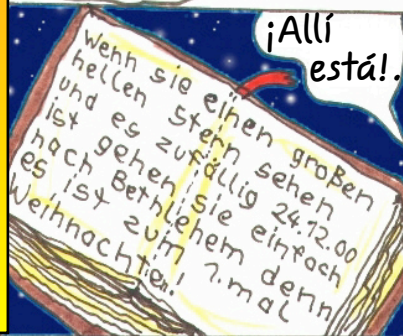 ¡Allí
está!.
Wenn sie einen großen
hellen Stern sehen
und es zufällig 24.12.00
ist gehen sie einfach
nach Bethlehem denn
es ist zum 1.mal
Weihnachten!